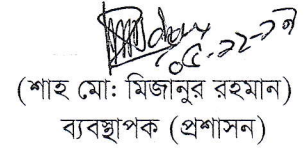 ০৫-১২-১৭
(শাহ মো: মিজানুর রহমান)
ব্যবস্থাপক (প্রশাসন)